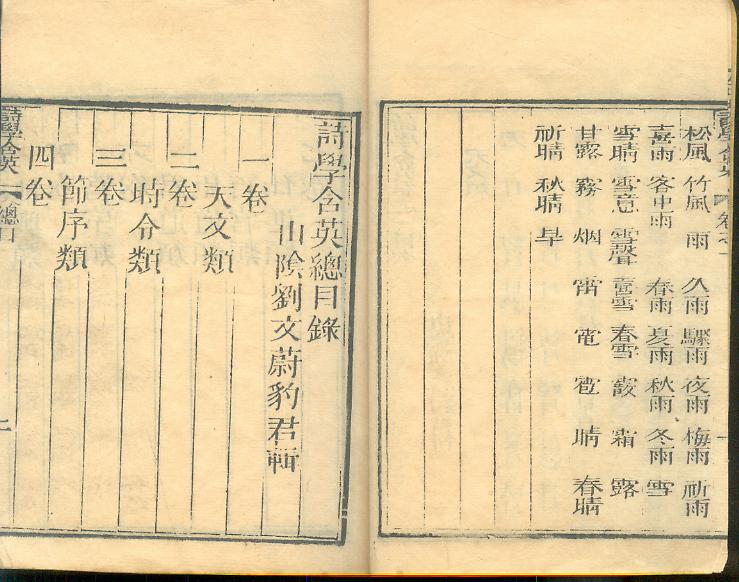 松風 竹風 雨 久雨 驟雨 夜雨 梅雨 祈雨
喜雨 客中雨 春雨 夏雨 秋雨 冬雨 雪
雪晴 雪意 雪聲 喜雪 春雪 霰 霜 露
甘露 霧 烟 雷 電 雹 晴 春晴
祈晴 秋晴 旱
詩學含英總目錄
山陰劉文蔚豹君輯
一卷
天文類
二卷
時令類
三卷
節序類
四卷
詩學含英 總目